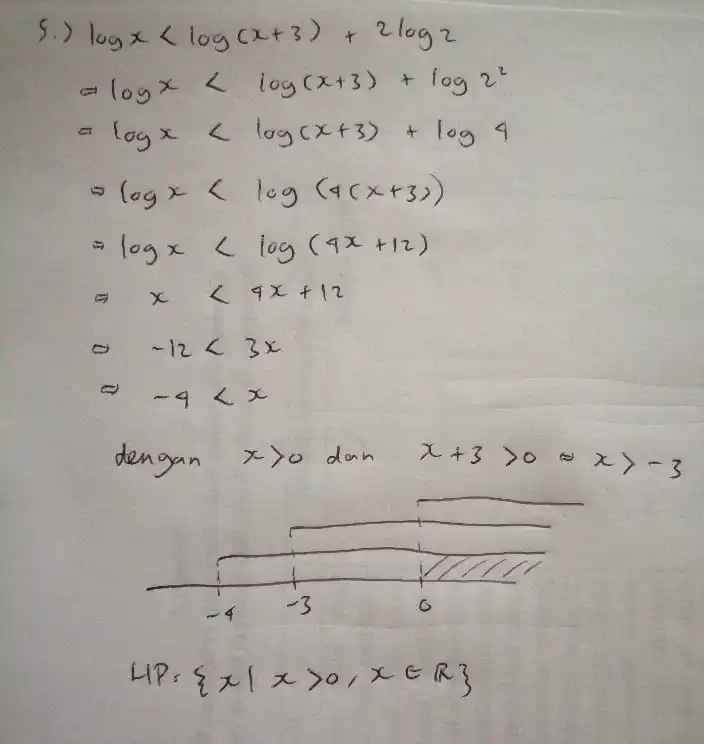 5.) log x < log (x+3) + 2 log 2
⇔ log x < log (x+3) + log 2²
⇔ log x < log (x+3) + log 4
⇔ log x < log (4(x+3))
⇔ log x < log (4x +12)
⇔ x < 4x + 12
⇔ -12 < 3x
⇔ -4 < x
dengan x>0 dan x+3 >0 ⇔ x > -3
-4 -3 0
HP: {x | x >0, x ∈ R}